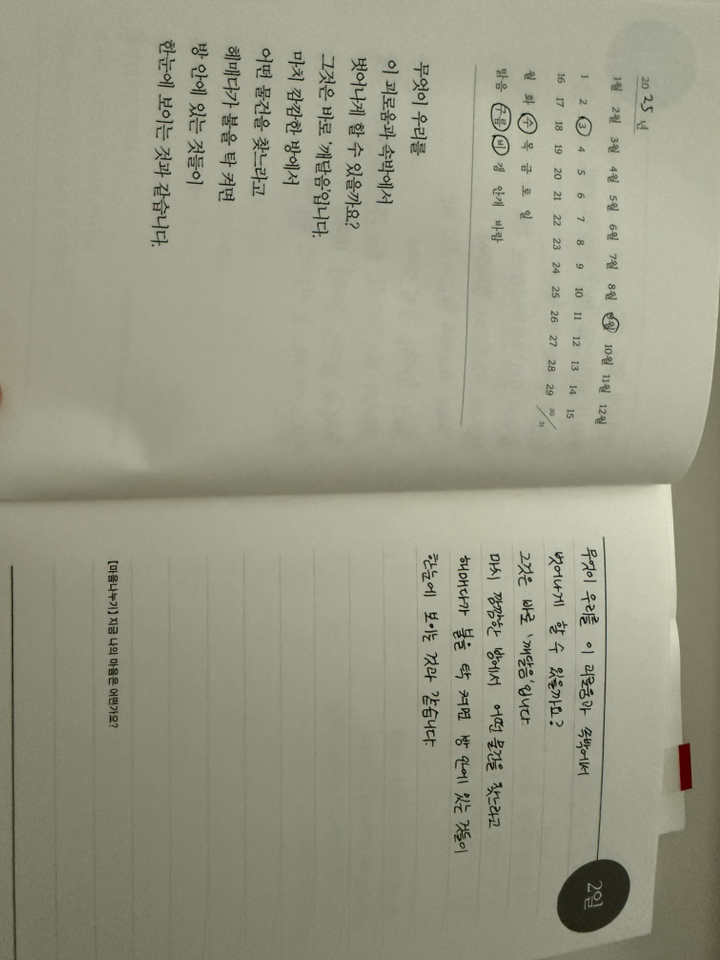 2025년
1월 2월 3월 4월 5월 6월 7월 8월 9월 10월 11월 12월
1 2 3 4 5 6 7 8 9 10 11 12 13 14 15
16 17 18 19 20 21 22 23 24 25 26 27 28 29 30/31
월 화 수 목 금 토 일
맑음 구름 비 갬 안개 바람
무엇이 우리를
이 괴로움과 속박에서
벗어나게 할 수 있을까요?
그것은 바로 '깨달음'입니다.
마치 깜깜한 방에서
어떤 물건을 찾느라고
헤매다가 불을 탁 켜면
방 안에 있는 것들이
한눈에 보이는 것과 같습니다.
2일
무엇이 우리를 이 괴로움과 속박에서
벗어나게 할 수 있을까요?
그것은 바로 '깨달음'입니다.
마치 깜깜한 방에서 어떤 물건을 찾느라고
헤매다가 불을 탁 켜면 방 안에 있는 것들이
한눈에 보이는 것과 같습니다.
[마음나누기] 지금 나의 마음은 어떤가요?